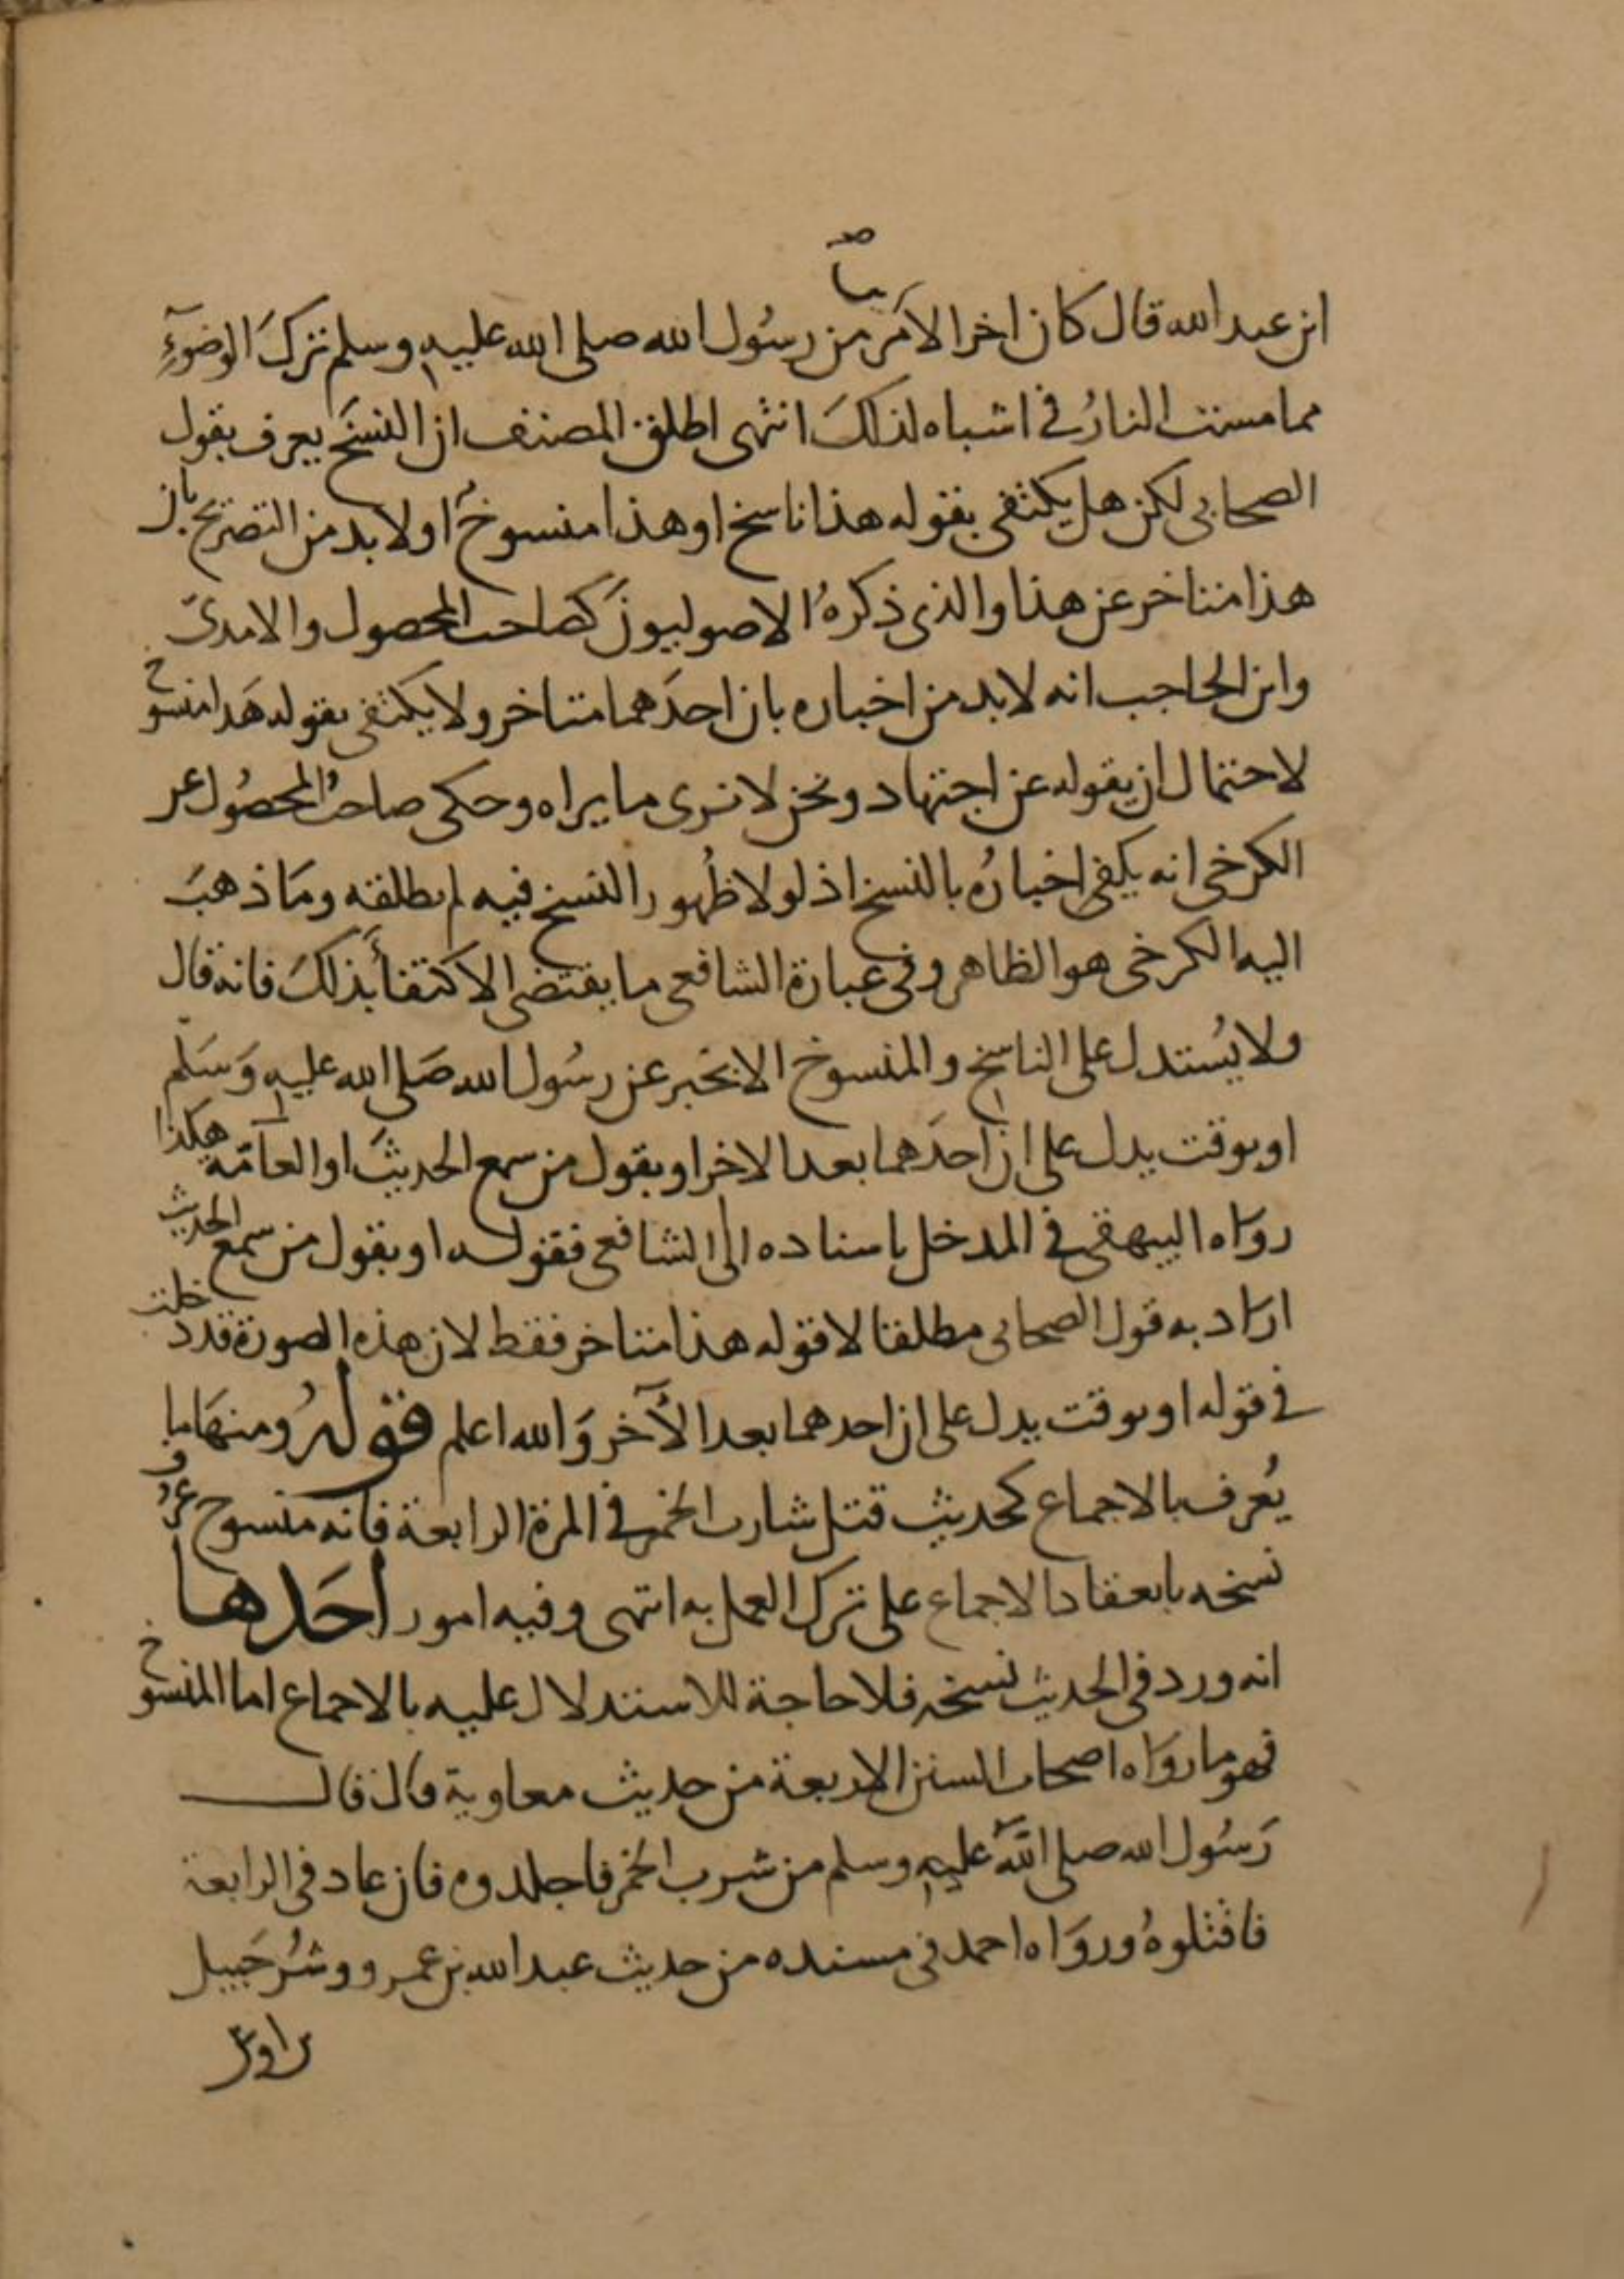 ابن عبد الله قال كان اخر الامر من رسُول الله صلى الله عليه وسلم تركَ الوضوءِ
مما مست النارُ في اشباه لذلكَ انتهى اطلق المصنف ان النسخَ يعرف بقول
الصحابي لكن هل يكتفى بقوله هذا ناسخ او هذا منسوخ او لا بد من التصريح بان
هذا متاخر عن هذا والذي ذكرهُ الاصوليون كصاحب المحصول والامدىّ
وابن الحاجب انه لابد من اخباره بان احدَهما متاخر ولا يكتفى بقوله هَذا منسوخ
لاحتمال ان يقوله عن اجتهاد ونحن لا نرى ما يراه وحكى صاحبُ المحصُول عن
الكرخي انه يكفي اخبارُه بالنسخ اذ لولا ظُهور النسخ فيه لم يطلقه ومَا ذهبَ
اليه الكرخي هو الظاهر وفي عبارة الشافعي ما يقتضي الاكتفأ بذلكَ فانه قال
ولا يُستدل على الناسخ والمنسوخ الا بخبر عن رسُول الله صَلى الله عليه وَسَلّم
او بوقت يدل على ان احدَهما بعد الاخر او بقول من سمع الحديثَ او العامّة هكذا
روَاه البيهقي في المدخل باسناده الى الشافعي فقوله او بقول من سمع الحديث
ارَاد به قول الصحابي مطلقا لا قوله هذا متاخر فقط لان هذه الصورة قد دخلت
في قوله او بوقت يدل على ان احدهما بعد الآخر وَالله اعلم قولهُ ومنهَا ما
يُعرف بالاجماع كحديث قتل شارب الخمر في المرة الرابعة فانه منسوخ عُرف
نسخه بانعقاد الاجماع على ترك العمل به انتهى وفيه امور احَدها
انه ورد في الحديث نسخه فلا حاجة للاستدلال عليه بالاجماع اما المنسوخ
فهو ما روَاه اصحاب السنن الاربعة من حديث معاوية قال قال
رَسُول الله صلى اللهُ عليه وسلم من شرب الخمر فاجلدوه فان عاد في الرابعة
فاقتلوهُ وروَاه احمد في مسنده من حديث عبد الله بن عمرو وشُرحَبيل